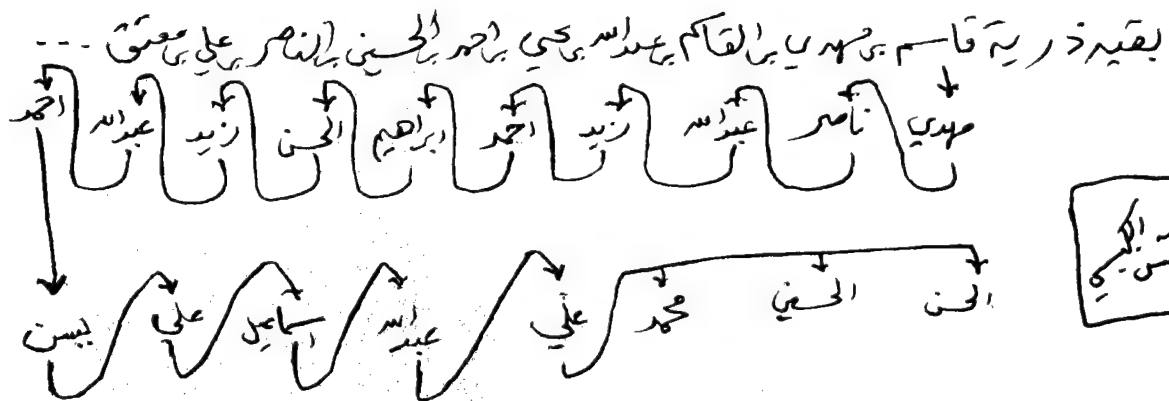 بقيه ذرية قاسم بن مهدي بن القاسم بن عبدالله بن يحيى بن احمد بن الحسين بن الناصر بن علي بن معتق ...
مهدي ناصر عبدالله زيد احمد ابراهيم الحسن زيد عبدالله احمد
الحسن الحسين محمد علي عبدالله اسماعيل علي